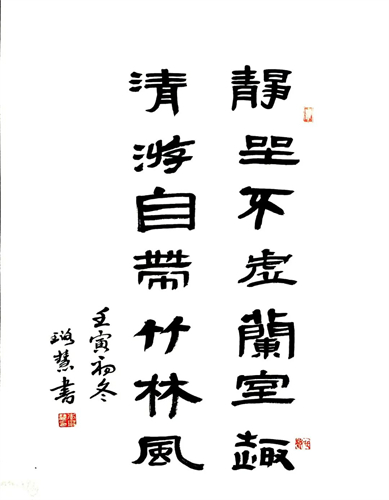 靜坐不虛蘭室趣
清游自帶竹林風
壬寅初冬
璐慧書